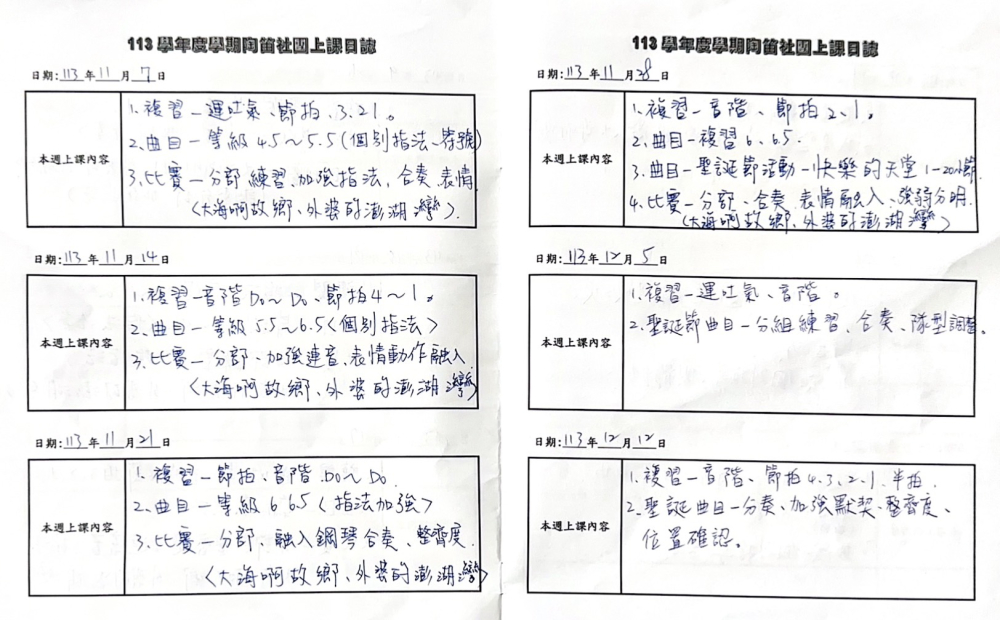 113 學年度學期陶笛社團上課日誌
日期:113年11月7日
本週上課內容
1.複習—運吐氣、節拍、3.2.1。
2.曲目—等級4.5～5.5(個別指法、符號)
3.比賽—分部練習、加強指法,合奏、表情.
〈大海啊故鄉、外婆的澎湖灣〉.
日期:113年11月14日
本週上課內容
1.複習—音階Do～Do、節拍4～1。
2.曲目—等級5.5～6.5〈個別指法〉
3.比賽—分部、加強連音、表情動作融入.
〈大海啊故鄉、外婆的澎湖灣〉
日期:113年11月21日
本週上課內容
1.複習—節拍、音階.Do～Do.
2.曲目—等級6.6.5〈指法加強〉
3.比賽—分部、融入鋼琴合奏、整齊度.
〈大海啊故鄉、外婆的澎湖灣〉
113 學年度學期陶笛社團上課日誌
日期:113年11月28日
本週上課內容
1.複習—音階、節拍2、1。
2.曲目—複習6、6.5.
3.曲目—聖誕節活動—快樂的天堂1-20小節
4.比賽—分部、合奏、表情融入、強弱分明.
〈大海啊故鄉、外婆的澎湖灣〉
日期:113年12月5日
本週上課內容
1.複習—運吐氣、音階。
2.聖誕節曲目—分組練習、合奏、隊型調整。
日期:113年12月12日
本週上課內容
1.複習—音階、節拍4.3.2.1.半拍.
2.聖誕曲目—分奏、加強默契、整齊度、
位置確認。